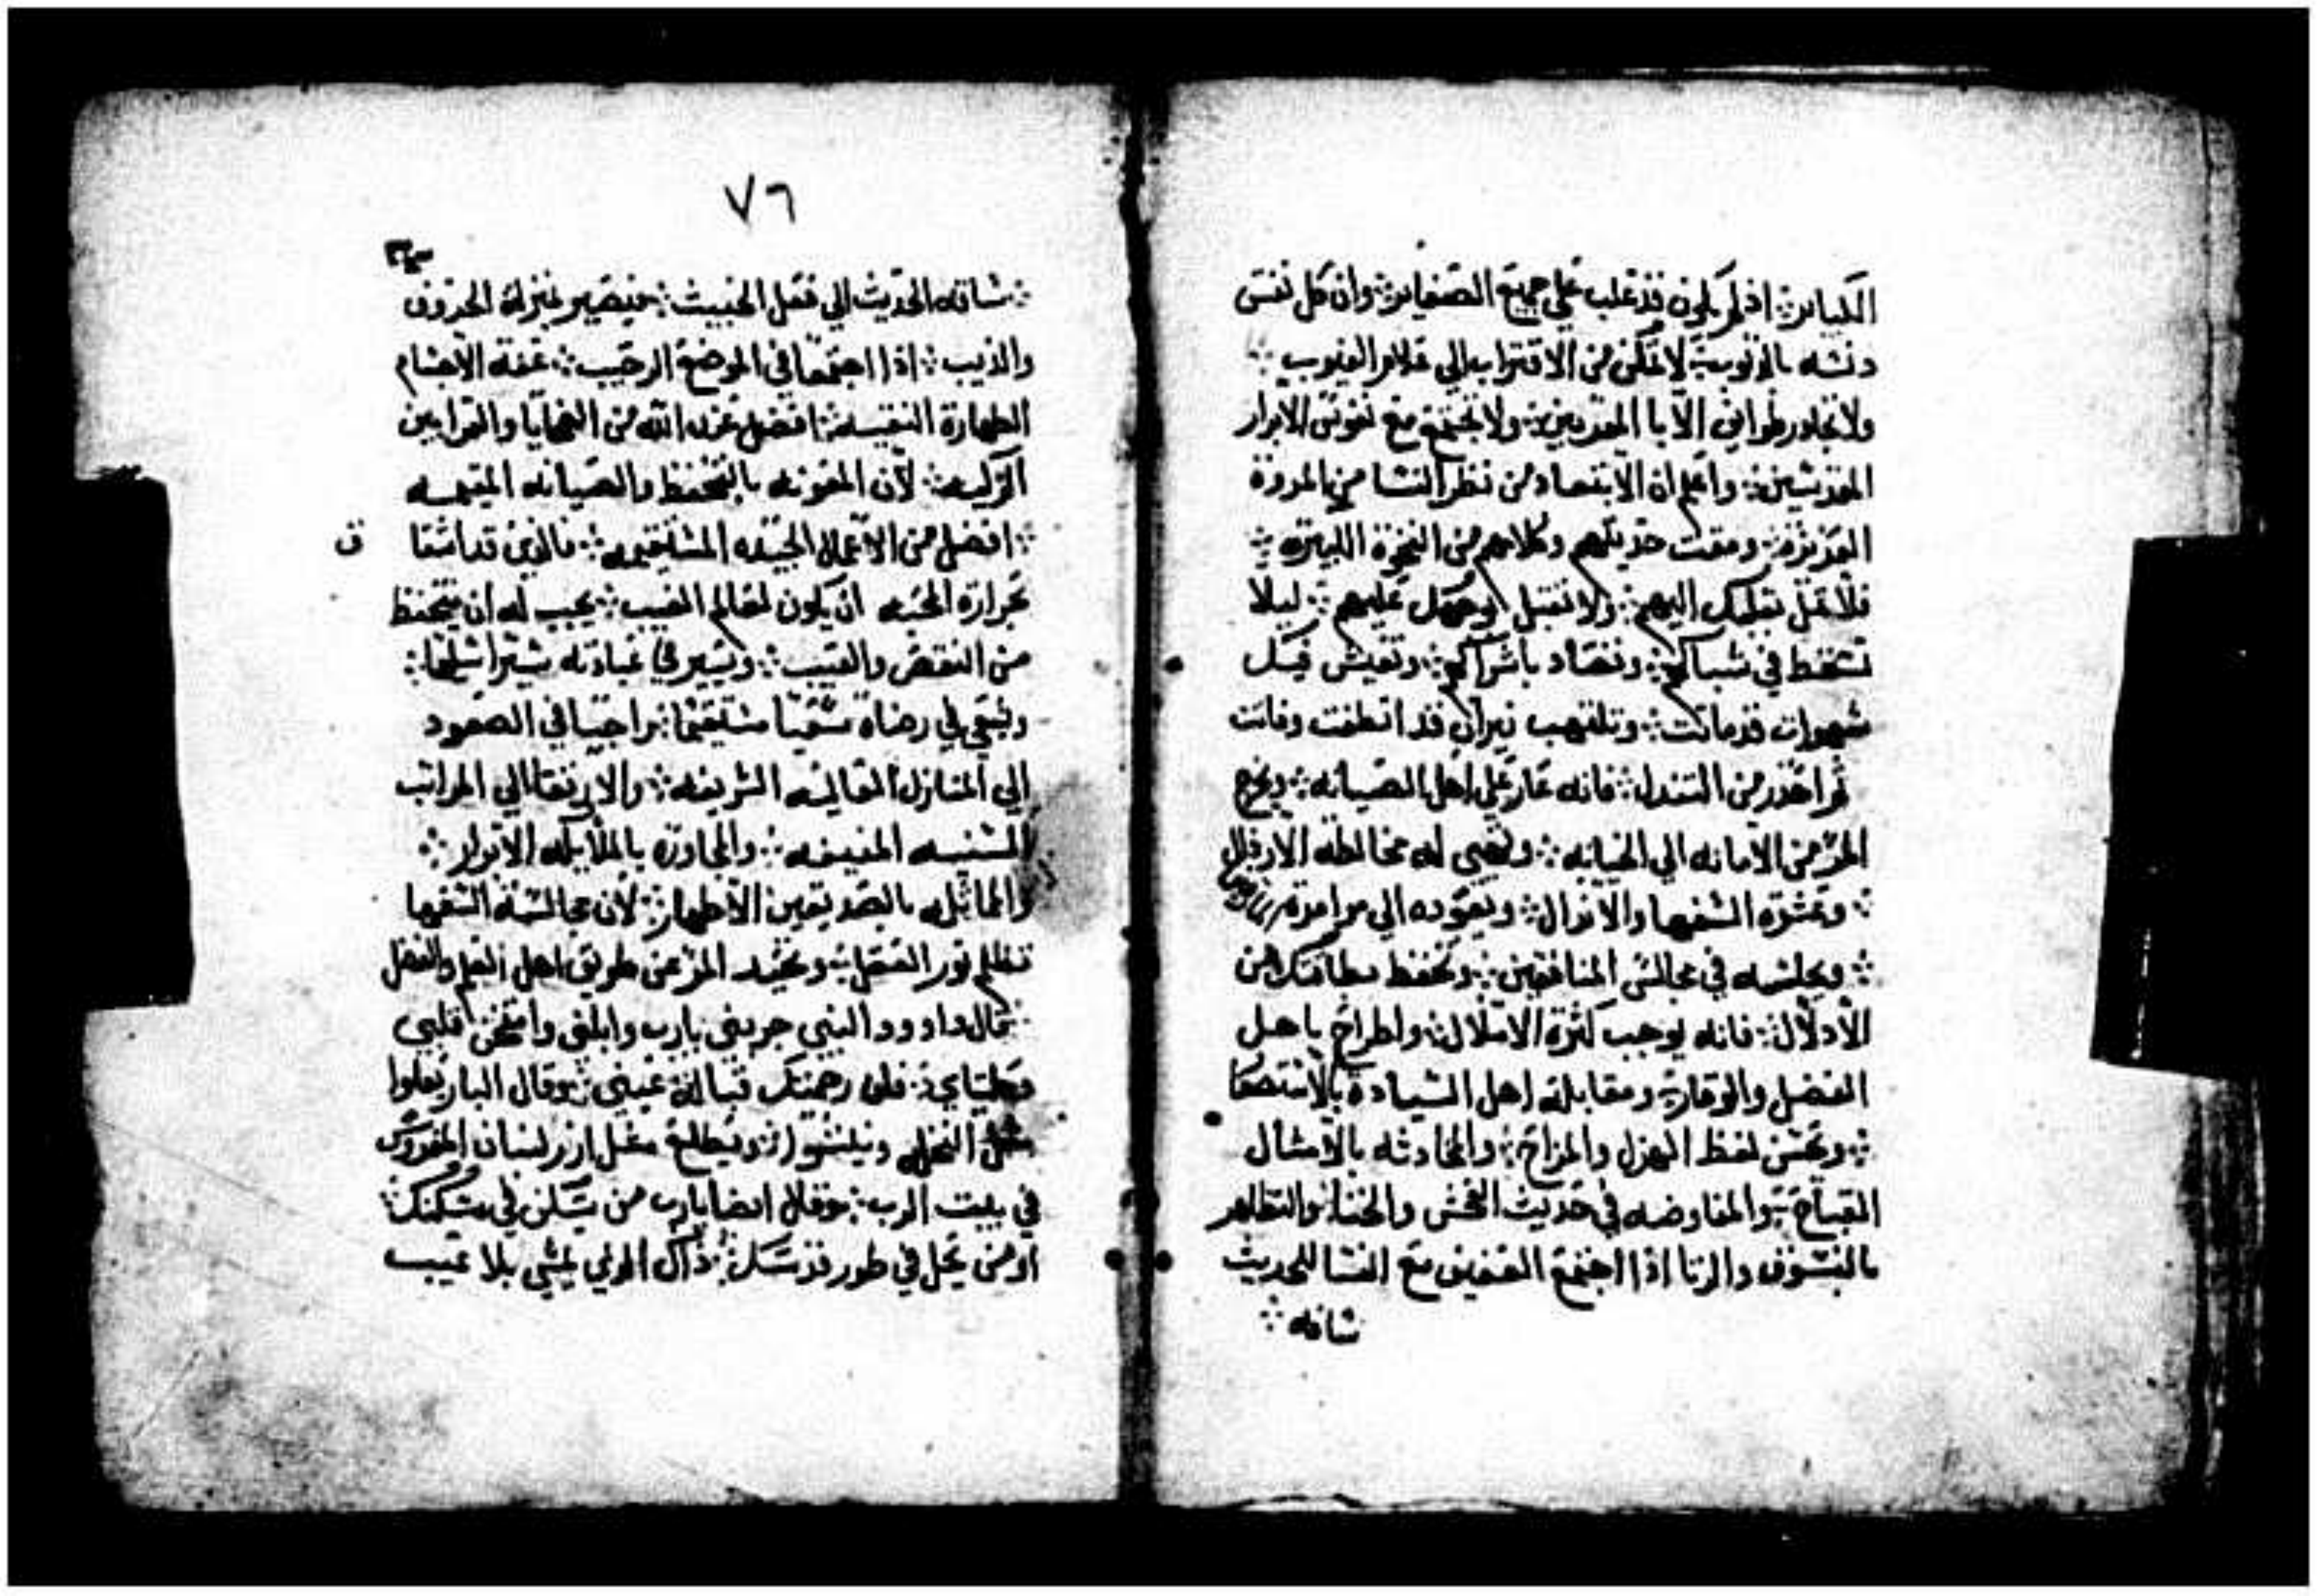 الكباير ⁘ اذ لم يكون قد غلب علي جميع الصغاير ⁘ وان كل نفس
دنسه بالذنوب ⁘ لا تمكن من الاقتراب الي علام الغيوب ⁘
ولا تجاور طوايف الابا المقدسين ⁘ ولا تجتمع مع نفوس الابرار
القديسين ⁘ واعلم ان الابتعاد من نظر النسا من المروة
العزيزه ⁘ ومقت حديثهم وكلامهم من النخوة الكبيره ⁘
فلا تمل بقلبك اليهم ⁘ ولا تقبل عليهم ⁘ ليلا
تسخط في شباكهم ⁘ وتصاد باشراكهم ⁘ وتعيش فيك
شهوات قد ماتت ⁘ وتلتهب نيران قد انطفت وفاتت
ثم احذر من التندل ⁘ فانه عار علي اهل الصيانه ⁘ ويخرج
المر من الامانه الي الخيانه ⁘ له مخالطه الاردال
⁘ وعشرة السفها والانزال ⁘ ويعوده الي
⁘ ويجلسه في مجالس المنافقين ⁘ وتحفظ من
الادلال ⁘ فانه يوجب كثرة الاملال ⁘ واطراح باهل
الفضل والوقار ⁘ ومقابلة اهل السيادة بالانتصاا
⁘ ويحسن لفظ الهزل والمزاح ⁘ والمحادثه بالامثال
القباح ⁘ والمفاوضه في حديث الفحش والخنا ⁘ والتظاهر
بالفسوق والزنا اذا اجتمع العفيف مع النسا للحديث
ساقه ⁘
٧٦
⁘ ساقه الحديث الي فعل الخبيث ⁘ فيصير بمنزلة الخروف
والذيب ⁘ اذا اجتمعا في الموضع الرحيب ⁘ عفة الاجسام
الطهارة النفيسه ⁘ افضل عند الله من الضحايا والقرابين
الزكيه ⁘ لان المعونه بالتحفظ والصيانه
⁘ افضل من الاعمال المستقيمه ⁘ فالذي قد
ق
بحرارة المحبه ان يكون لعالم الغيب ⁘ يجب له ان يتحفظ
من النقص والعيب ⁘ ويسير في عبادته
ويسعي في رضاه سعيا مستقيما ⁘ راجيا في الصعود
الي المنازل العاليه الشريفه ⁘ والارتقا الي المراتب
السنيه المنيفه ⁘ والمجاوره بالملايكه الابرار ⁘
والماثله بالصديقين الاطهار ⁘ لان مجالسة السفها
تظلم نور العقل ⁘ وتحيد المر عن طريق اهل العلم والفضل
⁘ قال داوود النبي جربني يارب وابلني وامتحن قلبي
وكليتاي ⁘ فان رحمتك قبالة عيني ⁘ وقال البار يعلوا
مثل النخله ويطلع مثل ارز لبنان المغروس
في بيت الرب ⁘ وقال ايضا يارب من يسكن في مسكنك ⁘
او من يحل في طور قدسك ⁘ ذاك الذي يمشي بلا عيب